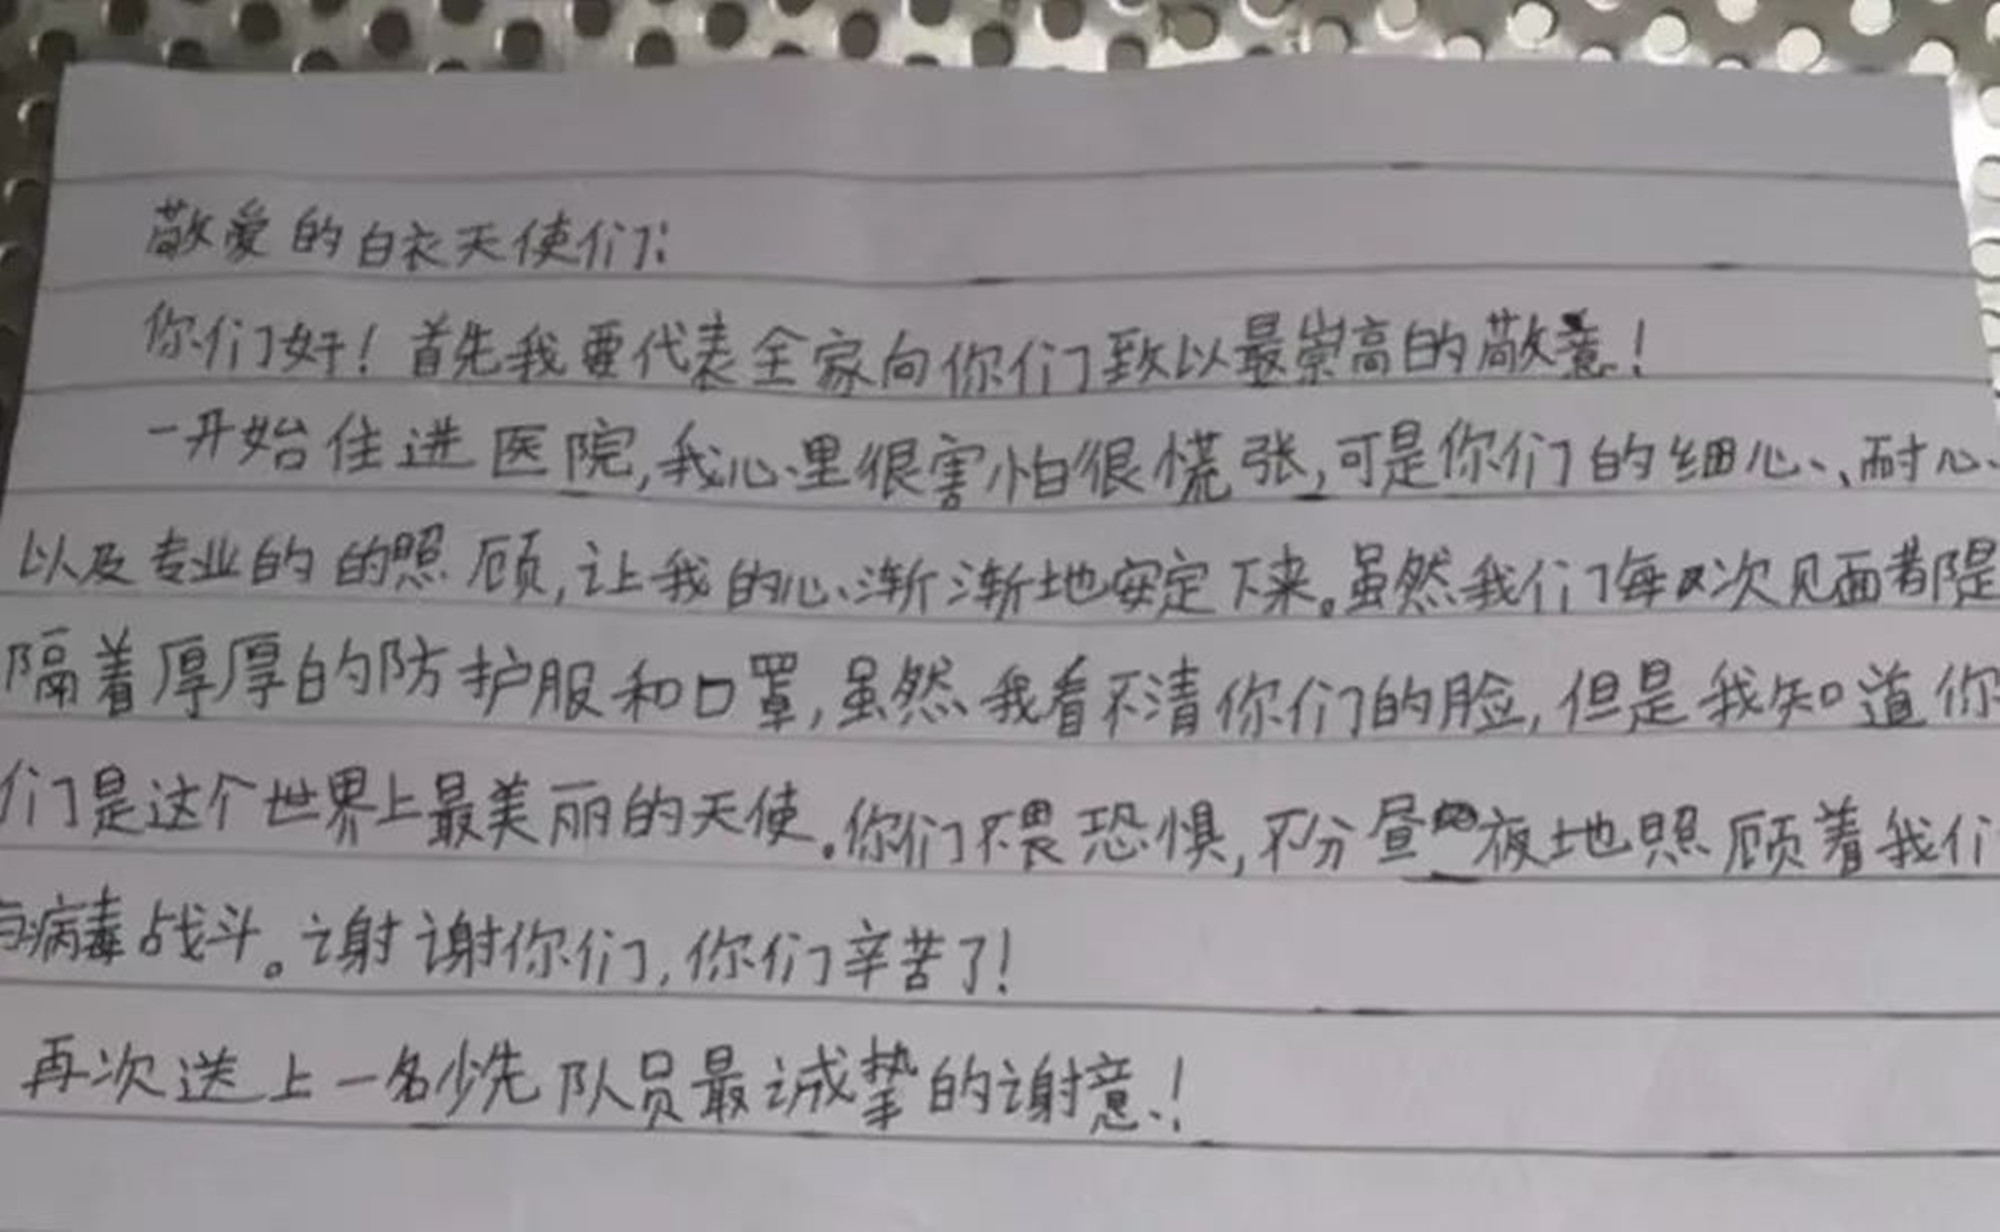 敬爱的白衣天使们:
你们好!首先我要代表全家向你们致以最崇高的敬意!
一开始住进医院,我心里很害怕很慌张,可是你们的细心、耐心、
以及专业的的照顾,让我的心渐渐地安定下来。虽然我们每次见面都
隔着厚厚的防护服和口罩,虽然我看不清你们的脸,但是我知道你
们是这个世界上最美丽的天使。你们不畏恐惧,不分昼夜地照顾着我们
与病毒战斗。谢谢你们,你们辛苦了!
再次送上一名少先队员最诚挚的谢意!